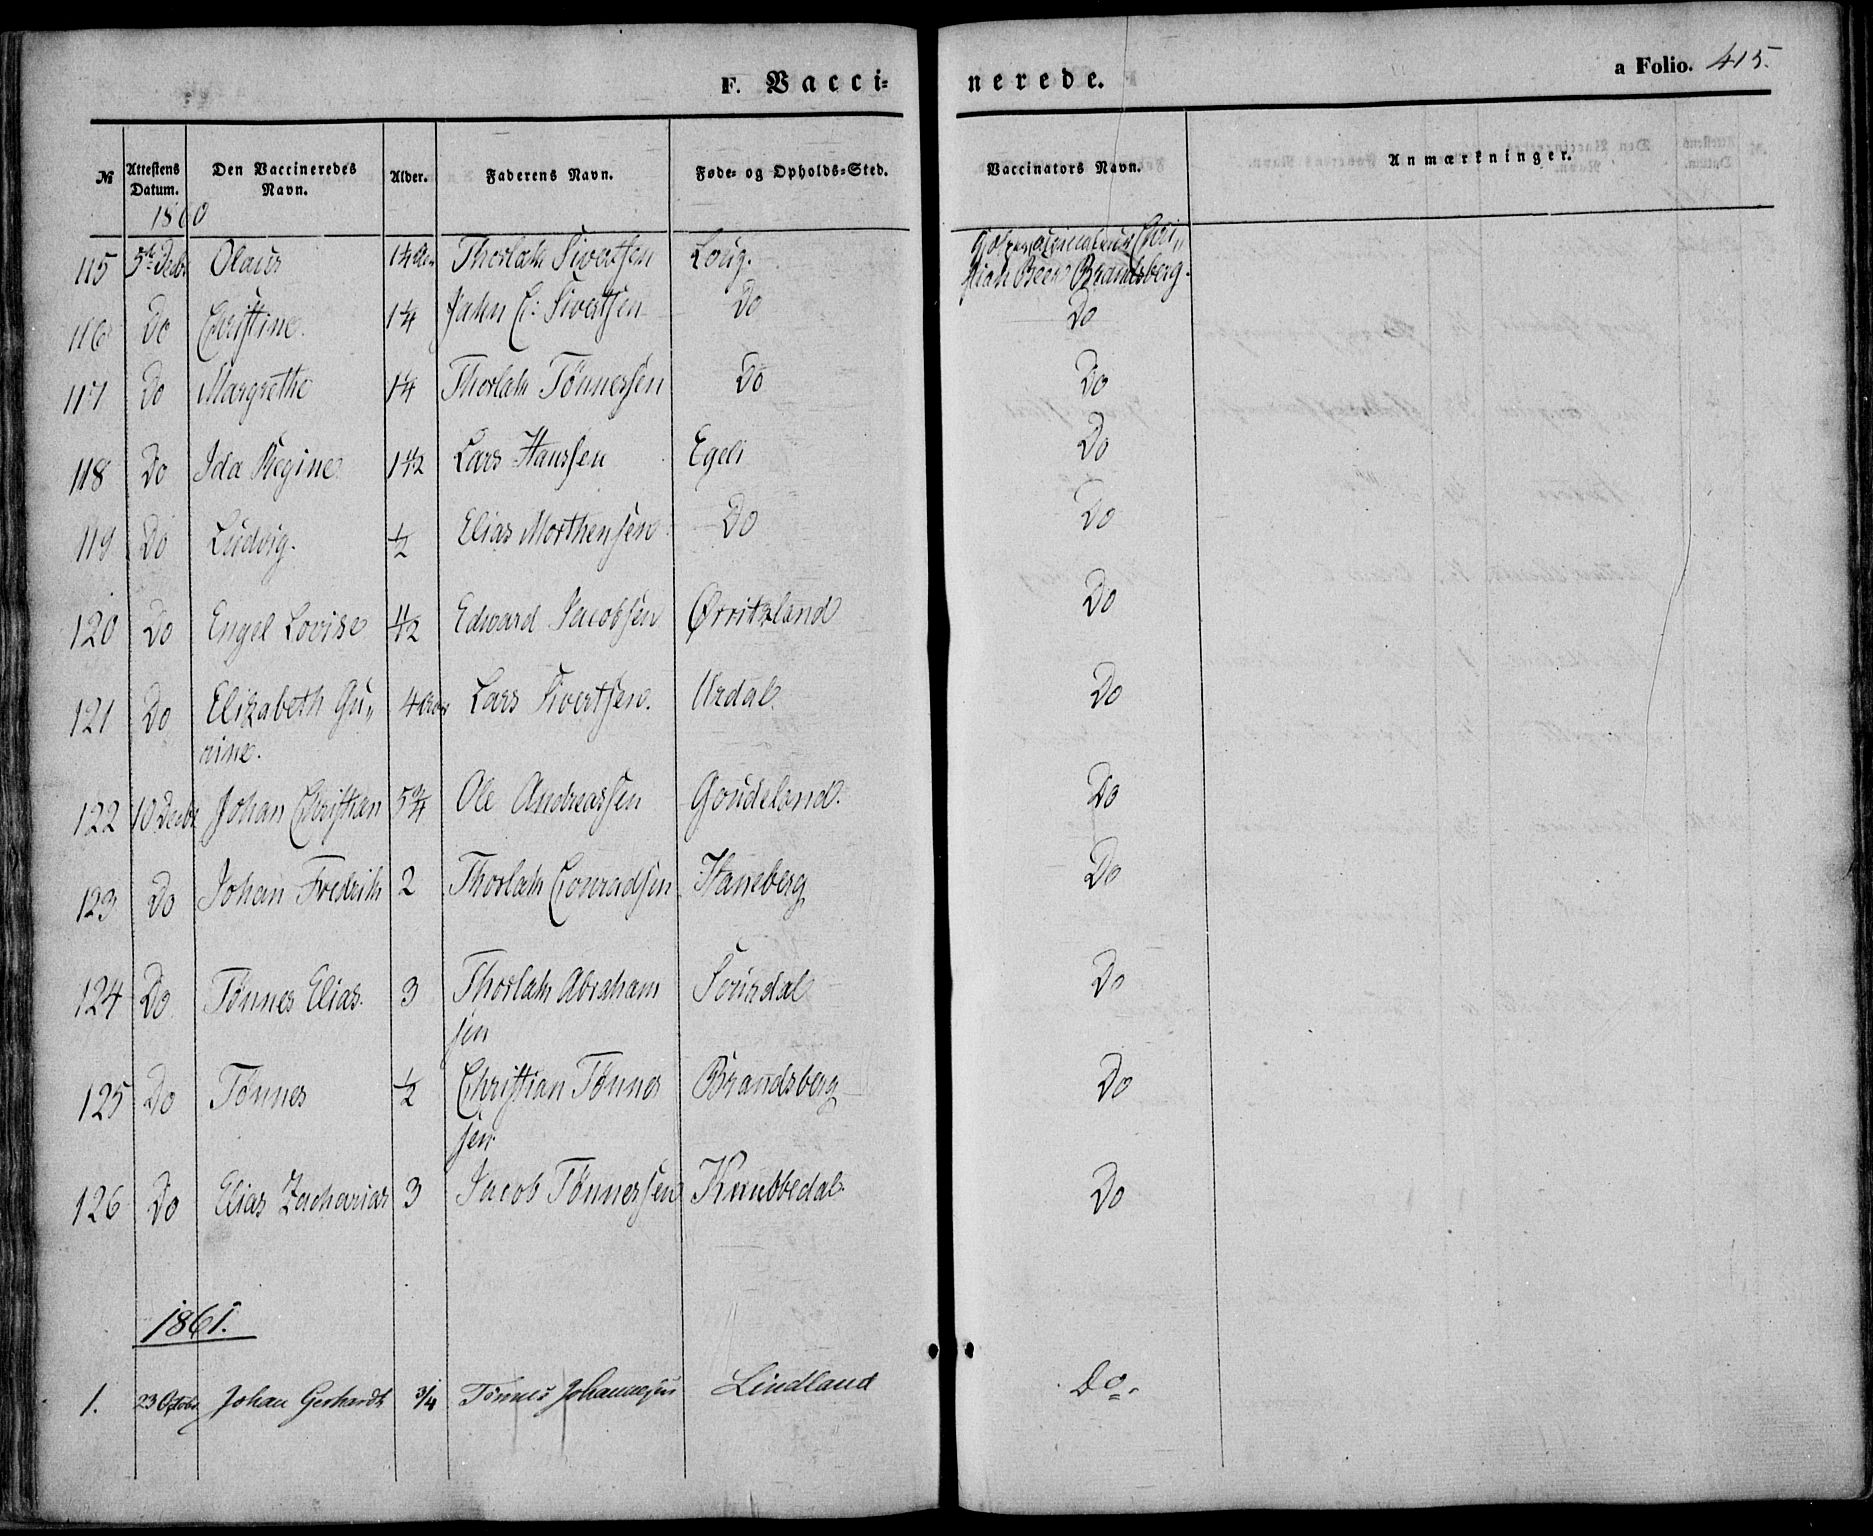 F. Vacci- nerede. a Folio. 415.
№ Attestens Datum. Den Vaccineredes Navn. Alder. Faderens Navn. Føde- og Opholds-Sted. Vaccinators Navn. Anmærkninger.
1860
115 5te Decbr Olaus 1¼ Thorlak Sivertsen Loug. Chri„
stian Brandsberg.
116 Do Christine. 1¼ Jahn C: Sivertsen Do Do
117 Do Margrethe 1¼ Thorlak Tönnessen Do Do
118 Do Ida Regine 1½ Lars Hanssen Egeli Do
119 Do Ludvig. ½ Elias Morthensen Do Do
120 Do Engel Lovise ½ Edward Jacobsen Ørritzland Do
121 Do Elizabeth Gu„ 4 Aar Lars Sivertsen. Urdal. Do
rine.
122 10 Decbr Johan Christian 5¾ Ole Andreassen Goudeland. Do
123 Do Johan Fredrik 2 Thorlak Conradsen Haneberg Do
124 Do Tönnes Elias. 3 Thorlak Abraham Do
sen
125 Do Tönnes ½ Christian Tönnes Brandsberg Do
sen
126 Do Elias Zacharias 3 Jacob Tönnessen Knubbedal. Do
1861.
1. 23 Octobr Johan Gerhardt 3/4 Tönnes Johannessen Lindland Do.